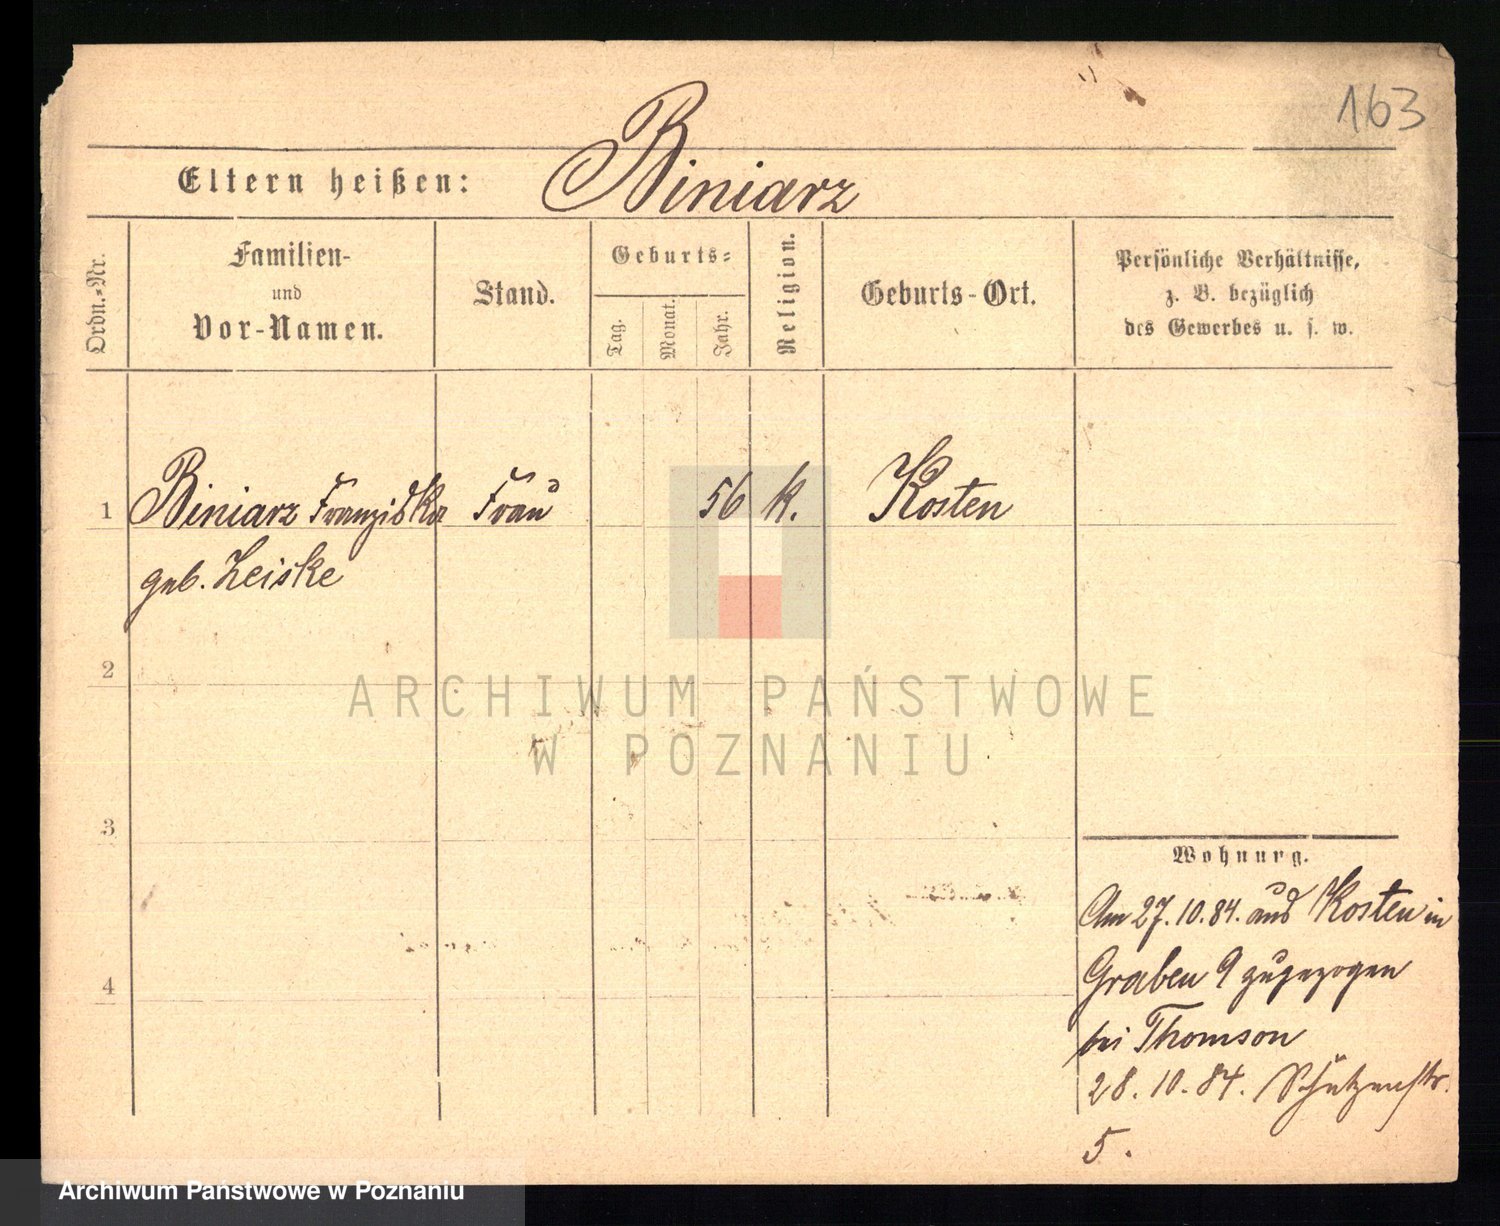 163
Eltern heißen: Biniarz
Ordn.-Nr.
Familien-
und
Vor-Namen.
Stand.
Geburts-
Tag.
Monat.
Jahr.
Religion.
Geburts-Ort.
Persönliche Verhältnisse,
z. B. bezüglich
des Gewerbes u. s. w.
1 Biniarz Franziska Frau 56 k. Kosten
geb. Zeiske
2
3
4
Wohnung.
Am 27.10.84. aus Kosten in
Graben 9 zugezogen
bei Thomson
28.10.84. Schützenstr.
5.
ARCHIWUM PAŃSTWOWE
W POZNANIU
Archiwum Państwowe w Poznaniu